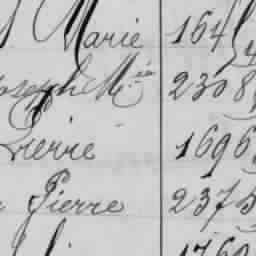 Marie 164
Joseph M.ie 2308
Pierre 1696
Pierre 2375
1760